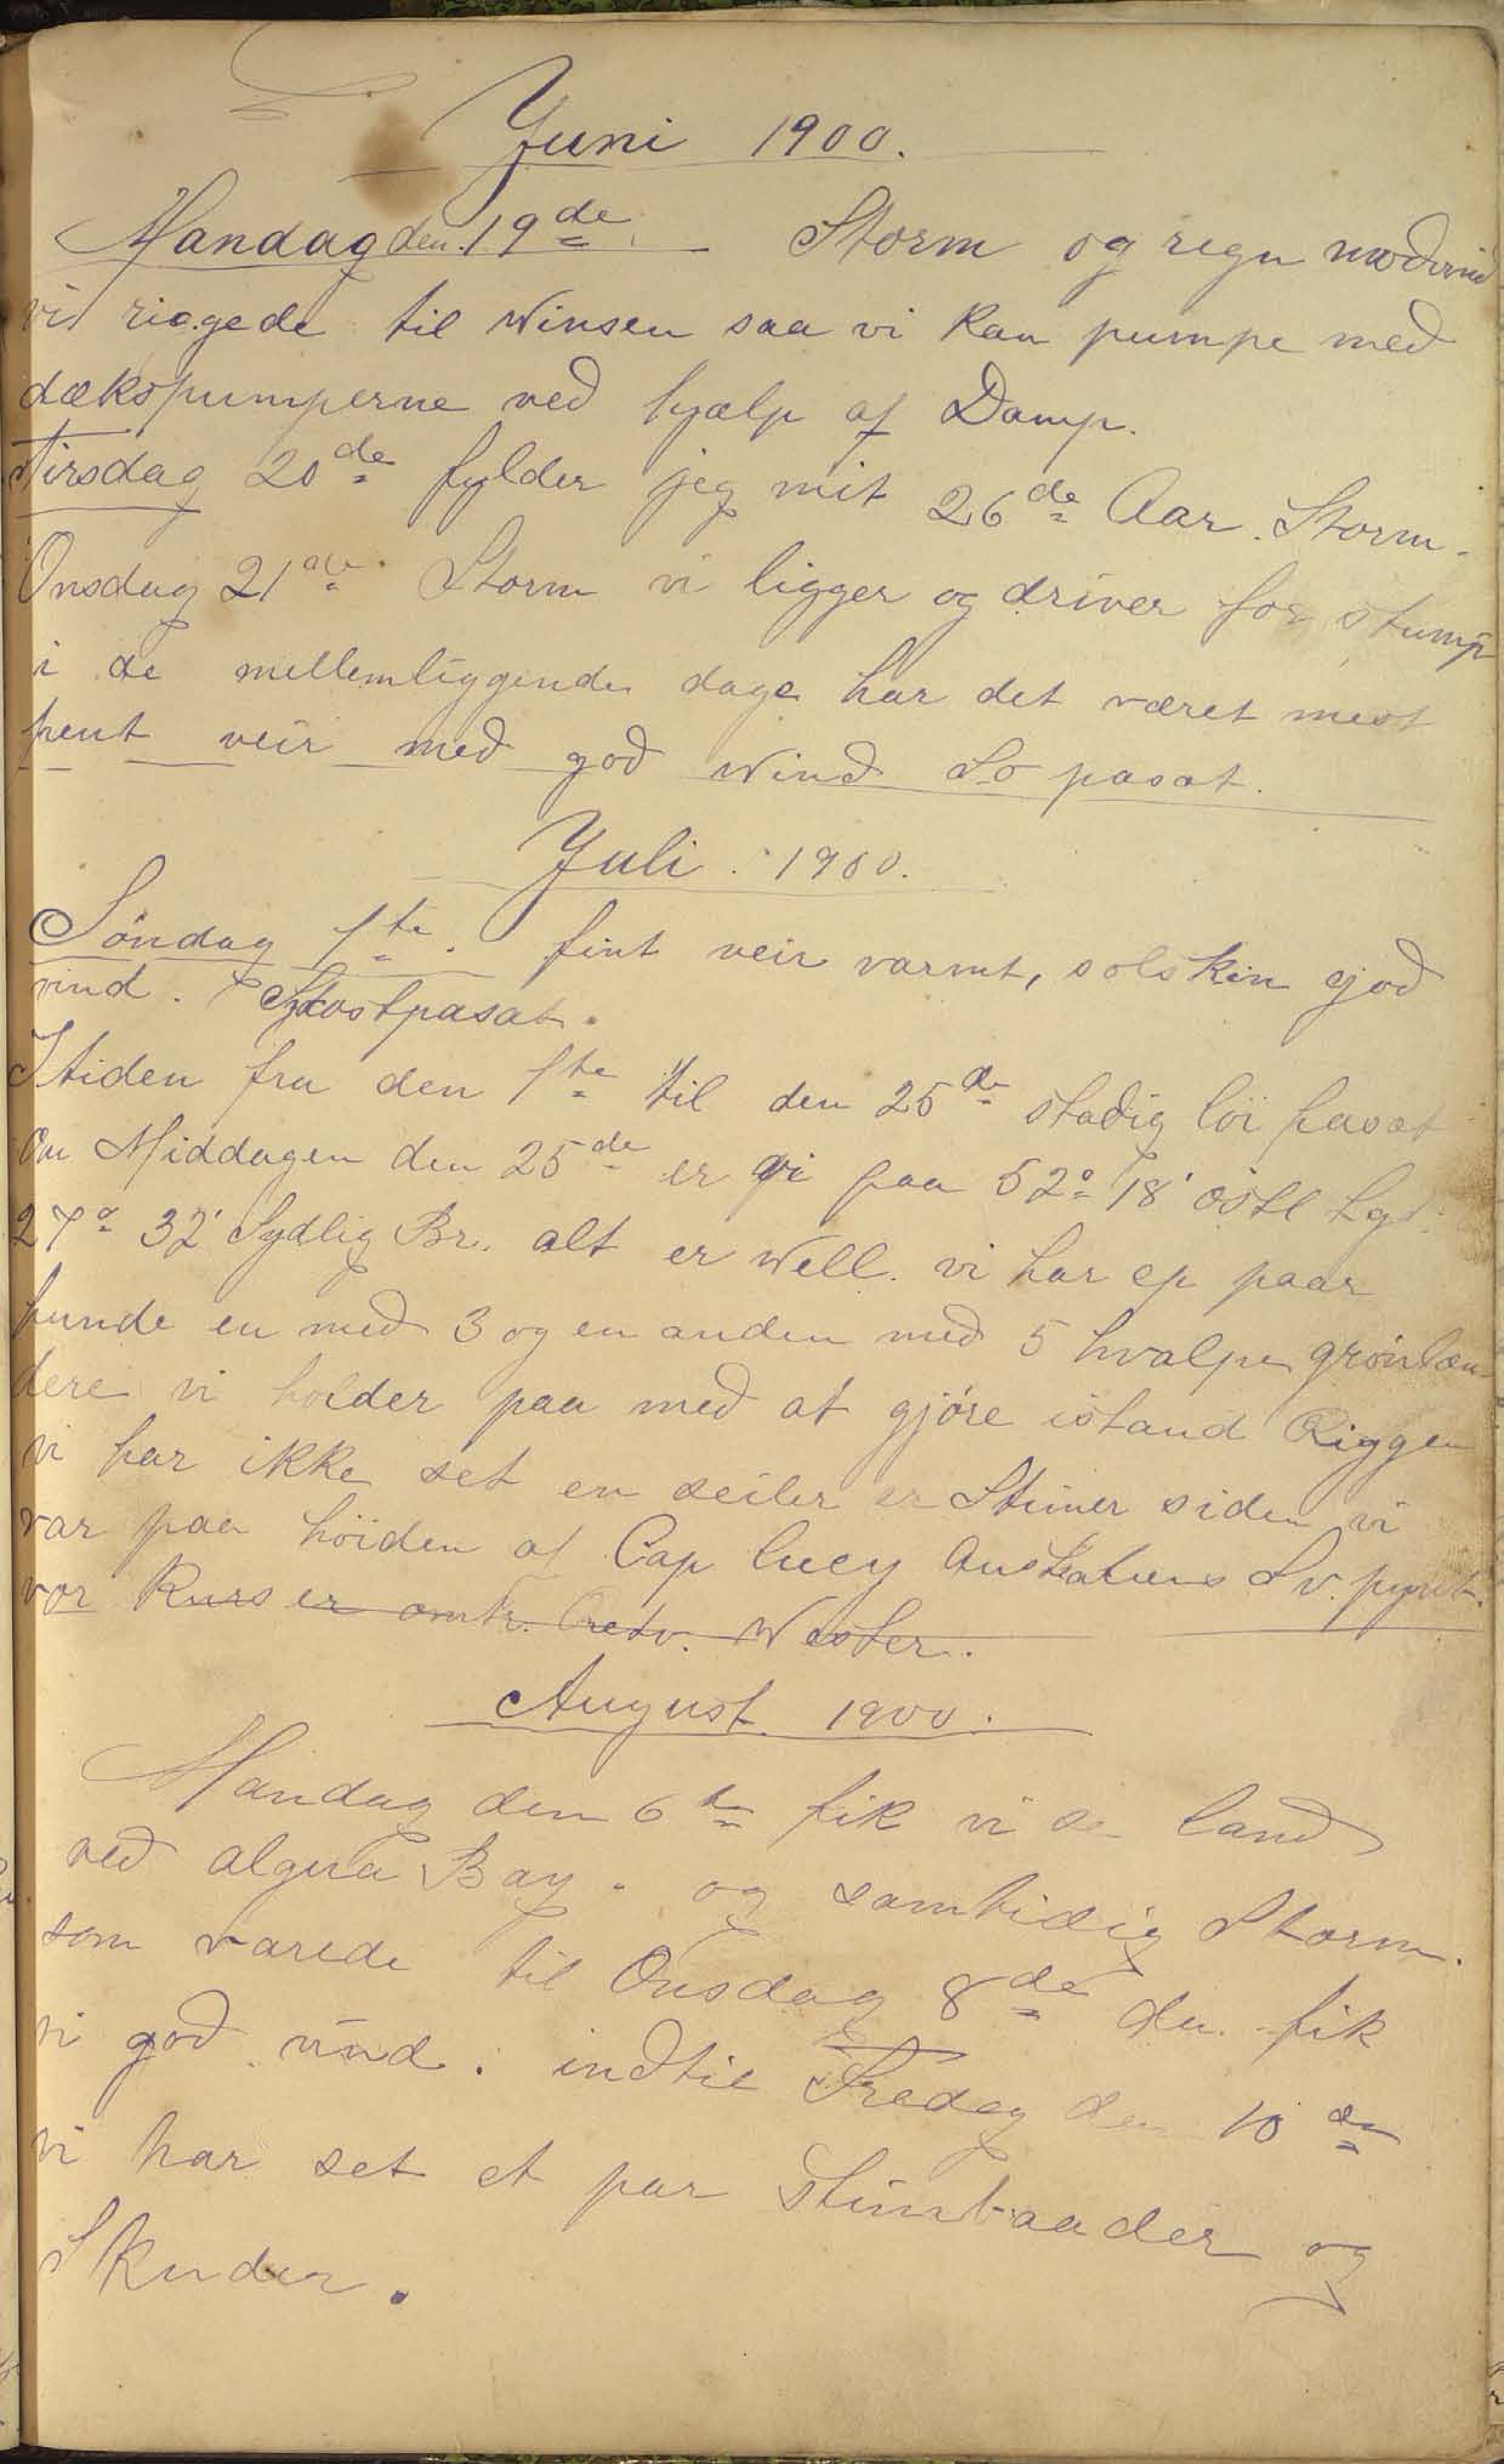 Juni 1900.
Mandag den 19de. Storm og regn modvind
vi riggede til Winsen saa vi kan pumpe med
dækspumperne ved hjælp af Damp.
Tirsdag 20de fylder jeg mit 26de Aar. Storm.
Onsdag 21de. Storm vi ligger og driver for stump
i de mellemliggende dage har det været mest
pent veir med god Wind So pasat.
Juli. 1900.
Söndag 1te. fint veir varmt, solskin god
vind. Sydostpasat.
I tiden fra den 1te til den 25de stadig löi pasat
Om Middagen den 25de er vi paa 52° 18' östl Lgd.
27° 32' Sydlig Br. alt er Well. vi har et paar
hunde en med 3 og en anden med 5 hvalpe grönlæn-
dere vi holder paa med at gjöre istand Riggen
vi har ikke set en seiler er Stimer siden vi
var paa höiden af Cap Australiens Sv. pynt.
vor Kurs er omtr. retv. Wester.
August. 1900.
Mandag den 6te fik vi se land
ved algua Bay. og samtidig Storm.
som varede til Onsdag 8de da fik
vi god vind. indtil Fredag den 10de
vi har set et par Stimbaader og
Skuder.